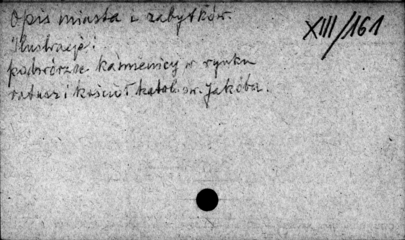 Opis miasta i zabytków.
XIII/161
Ilustracje:
podwórze kamienicy w rynku
ratusz i kościół katol. św. Jakóba.